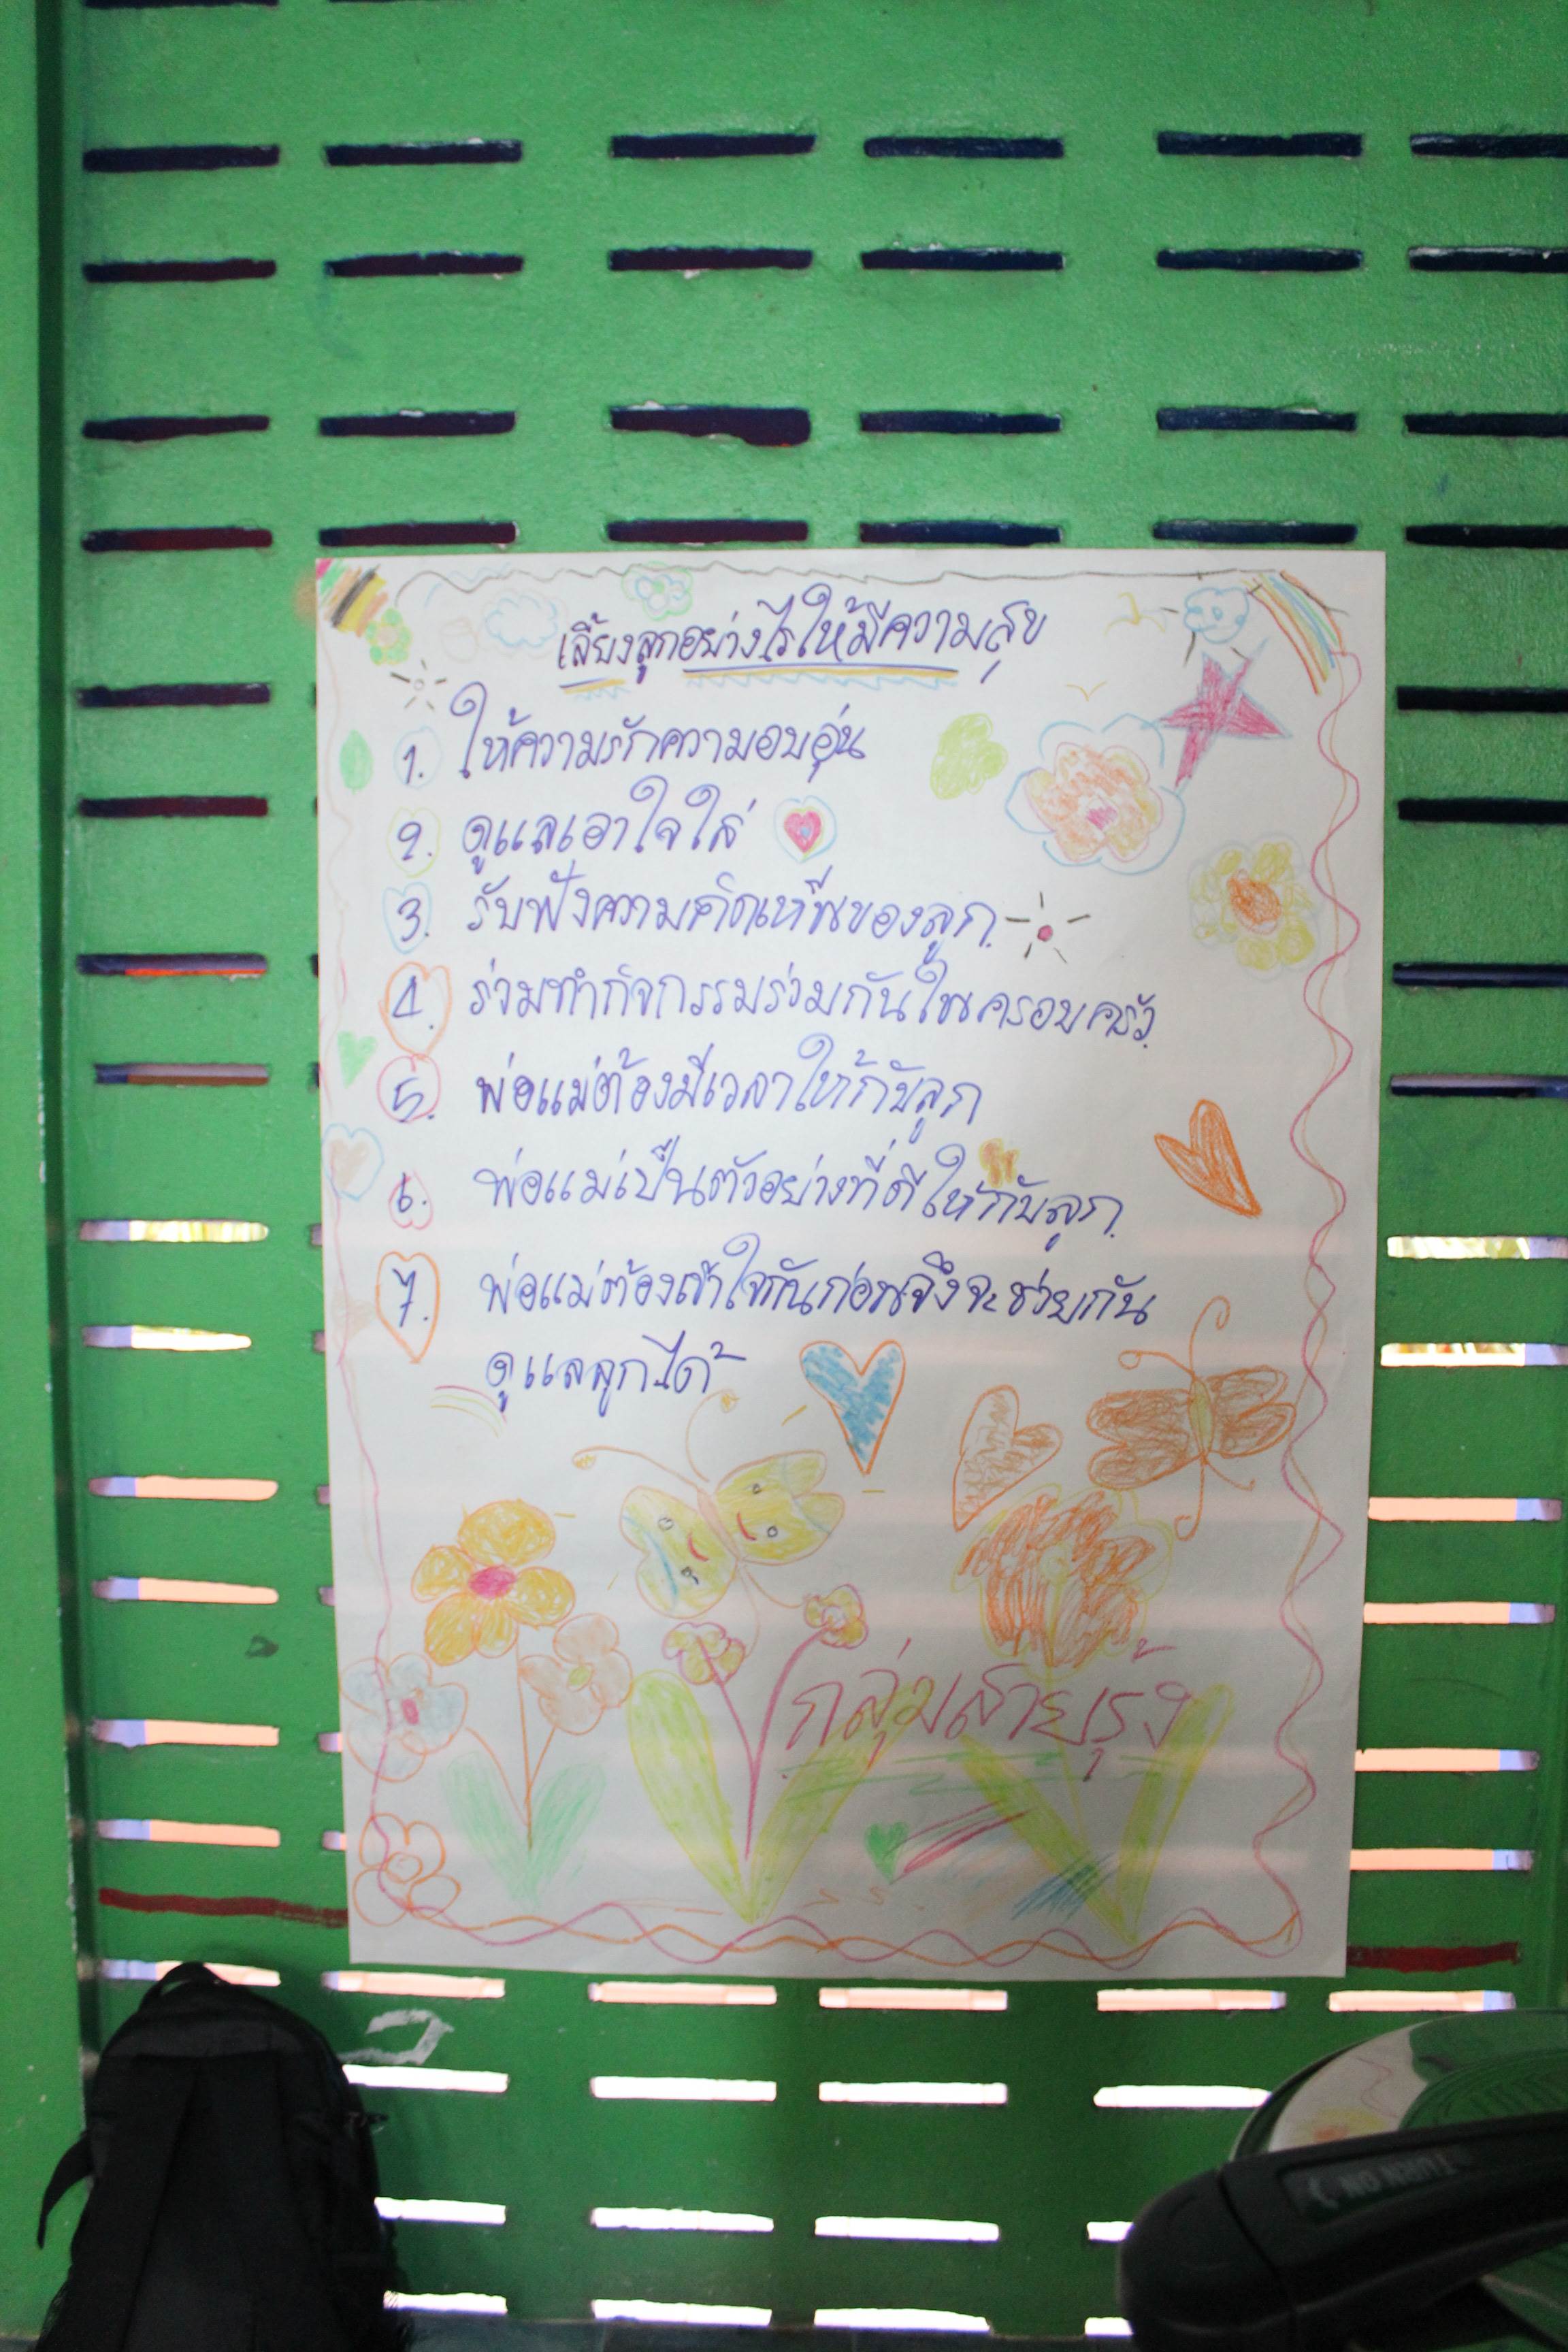 เลี้ยงลูกอย่างไรให้มีความสุข
1. ให้ความรักความอบอุ่น
2. ดูแลเอาใจใส่
3. รับฟังความคิดเห็นของลูก
4. ร่วมทำกิจกรรมร่วมกันในครอบครัว
5. พ่อแม่ต้องมีเวลาให้กับลูก
6. พ่อแม่เป็นตัวอย่างที่ดีให้กับลูก
7. พ่อแม่ต้องเข้าใจกันก่อนจึงจะช่วยกัน
ดูแลลูกได้
กลุ่มสายรุ้ง
TURN ON